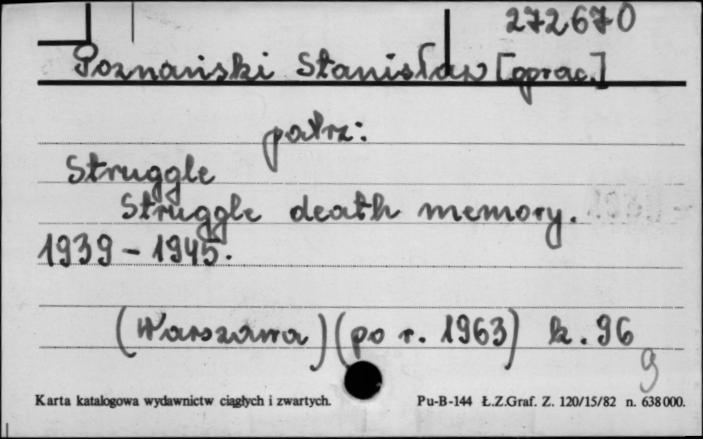 272670
Poznański Stanisław [oprac.]
patrz:
Struggle
Struggle death memory.
1939-1945.
(Warszawa) (po r. 1963) k. 96
g
Karta katalogowa wydawnictw ciągłych i zwartych. Pu-B-144 Ł.Z.Graf. Z. 120/15/82 n. 638000.